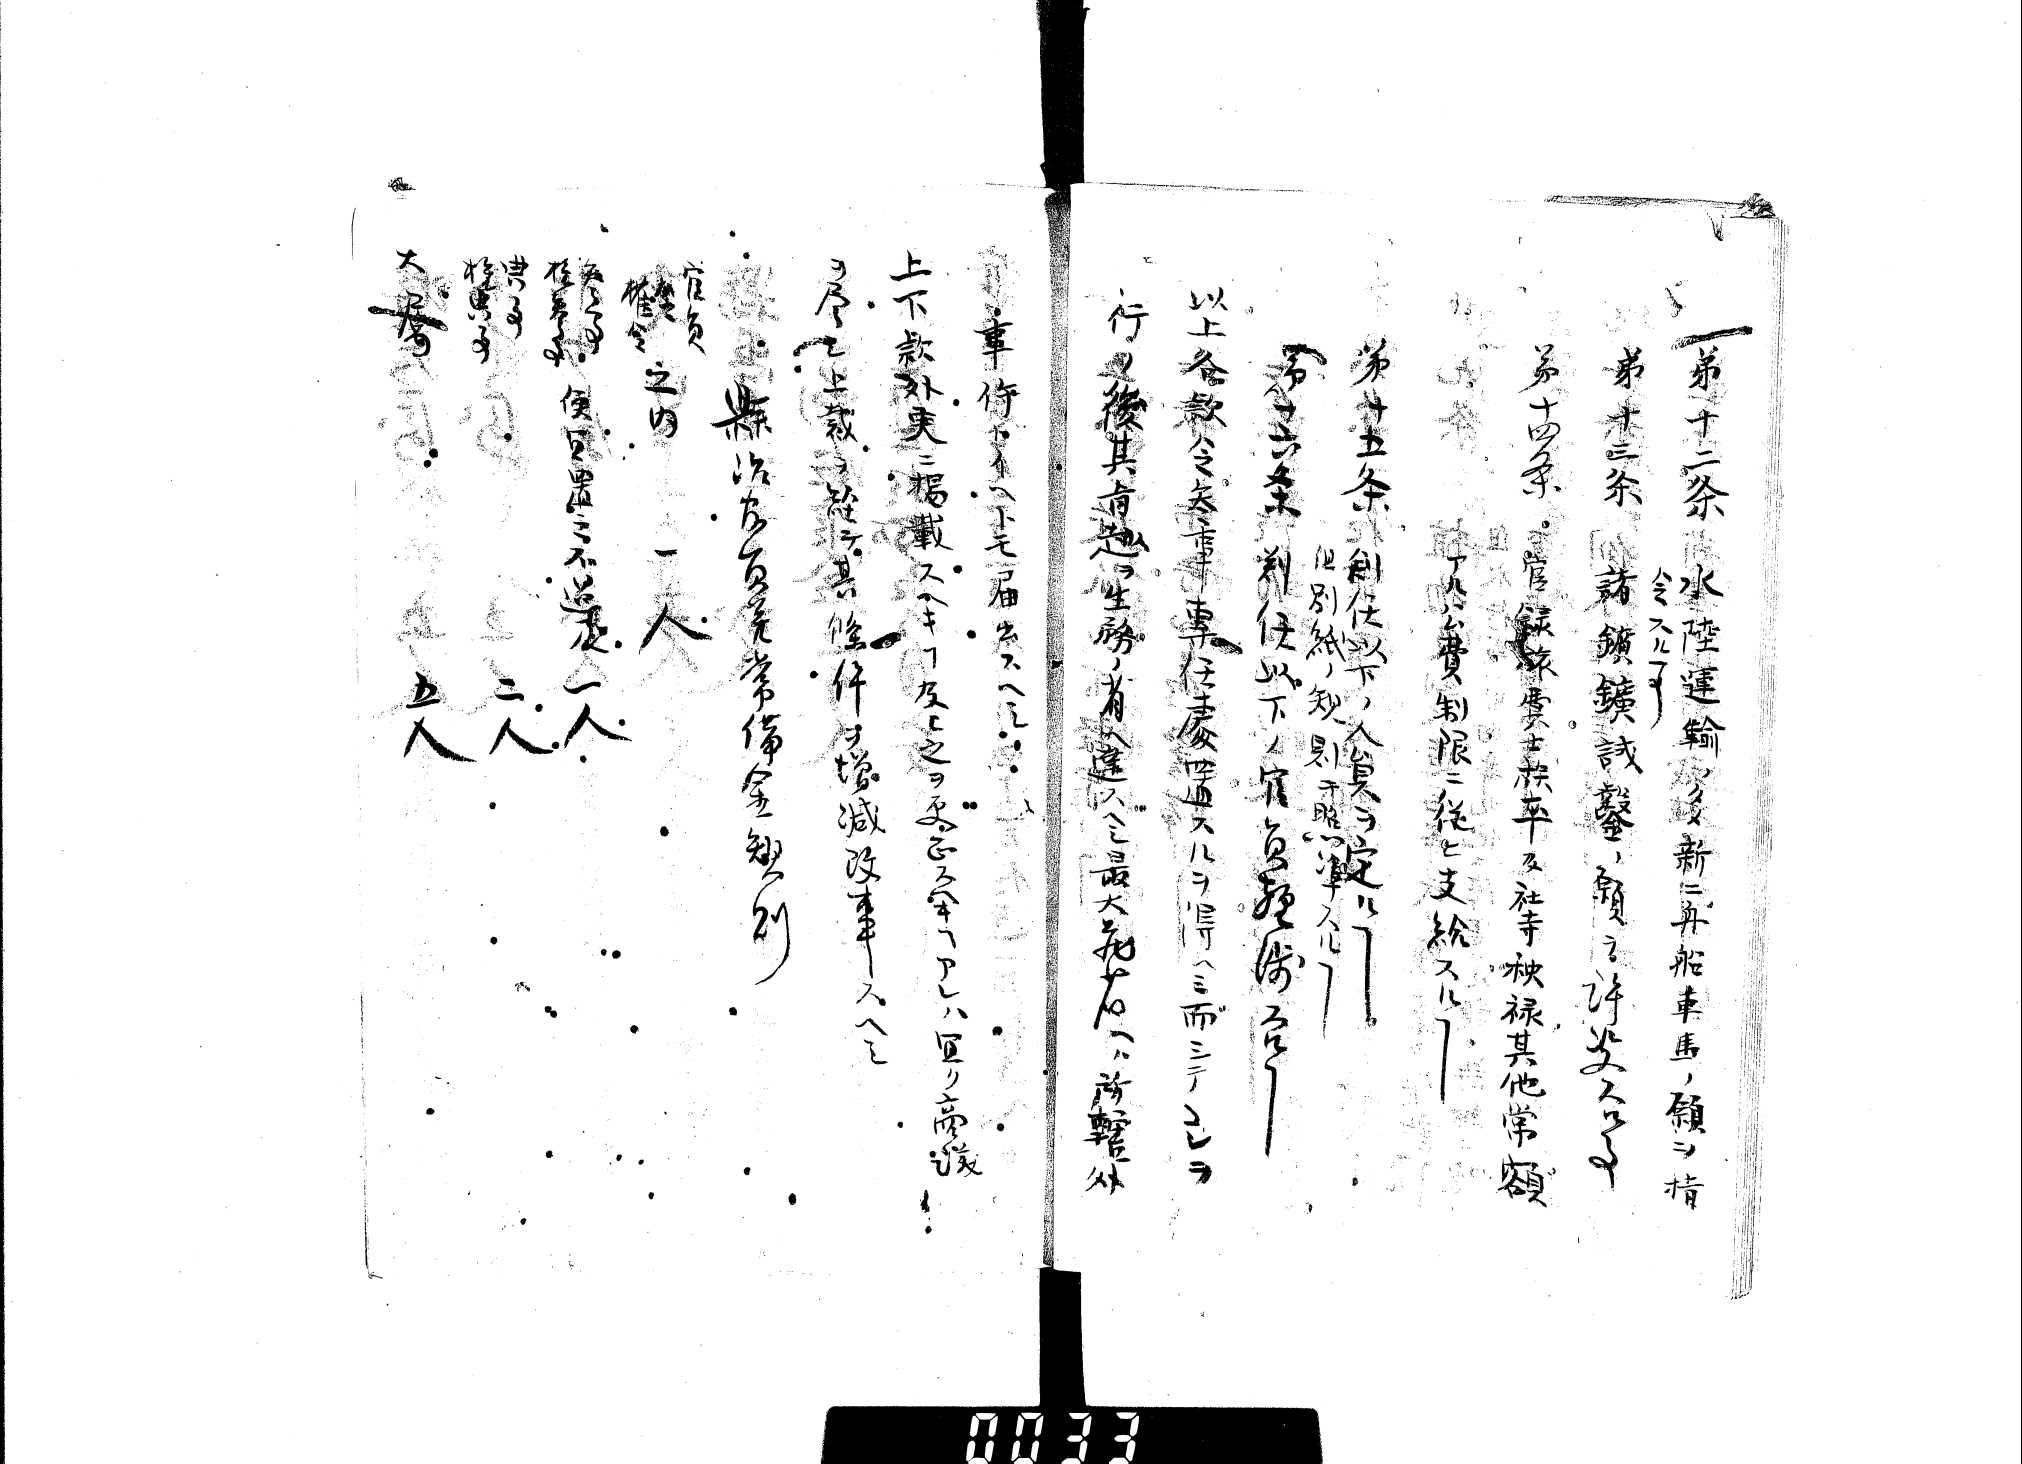 第十二条 水陸運輸ノタメ新ニ舟船車馬ノ願ヲ指
令スル事
第十三条 諸鑛鑛試鑿ノ願ヲ許
第十四条 官禄旅費士族卒及社寺秧禄其他常額
アル公費制限ニ従ヒ支給スルヿ
第十五条 判任以下ノ人員ヲ定ルヿ
但別紙ノ規則ヲ照準スルヿ
第十六条 判任以下ノ官員
以上各款令参事専任處置スルヲ得ヘシ而シテ之ヲ
行フ後其旨趣ヲ主務ノ省へ達スヘシ最大花ノ所轄外
事件トイヘトモ届出スヘシ
上下款外更ニ掲載スヘキヿ及ヒ之ヲ更正スヘキヿアレハ宜ク商議
ヲ尽シ上裁ヲ経テ其條件ヲ増減改事スヘシ
縣治官員并常備金規則
官員
令
権令 之内 一人
参事
権参事 便宜置之不過 一人
典事
権典事 二人
大属 五人
0033